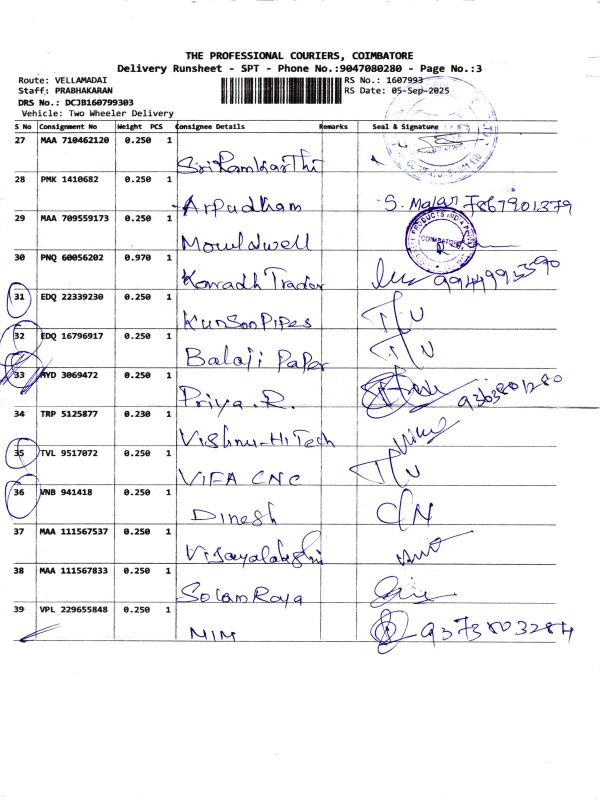 THE PROFESSIONAL COURIERS, COIMBATORE
Delivery Runsheet - SPT - Phone No.:9047080280 - Page No.:3
Route: VELLAMADAI RS No.: 1607993
Staff: PRABHAKARAN RS Date: 05-Sep-2025
DRS No.: DCJB160799303
Vehicle: Two Wheeler Delivery
S No Consignment No Weight PCS Consignee Details Remarks Seal & Signature
27 MAA 710462120 0.250 1
28 PMK 1410682 0.250 1 Arpudham S. Malar 7867901379
29 MAA 709559173 0.250 1 Mouldwell COIMBATORE
30 PNQ 60056202 0.970 1 Konradh Trador
31 EDQ 22339230 0.250 1 KunSon Pipes T/U
32 EDQ 16796917 0.250 1 Balaji Paper T/U
33 MYD 3069472 0.250 1 Priya.R. 9363801280
34 TRP 5125877 0.230 1 Vishnu-HiTech
35 TVL 9517072 0.250 1 VIFA CNC T/U
36 VNB 941418 0.250 1 Dinesh C/N
37 MAA 111567537 0.250 1 Vijayalakshmi
38 MAA 111567833 0.250 1 Solam Raya
39 VPL 229655848 0.250 1 MIM 9373803284